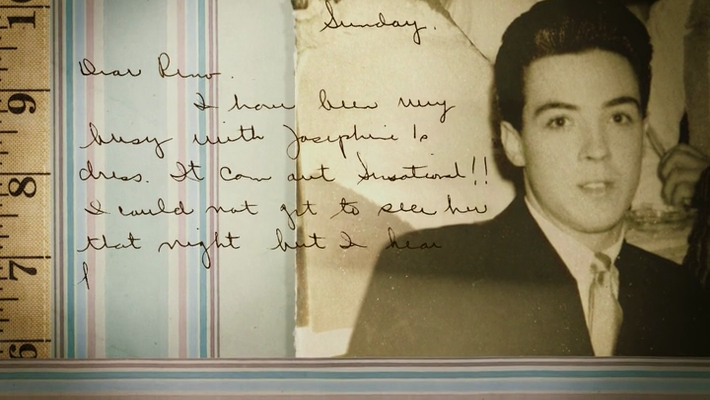 Sunday.
Dear Reno.
I have been very
busy with Josephine's
dress. It came out Sensational!!
I could not get to see her
that night but I hear
10
9
8
7
6